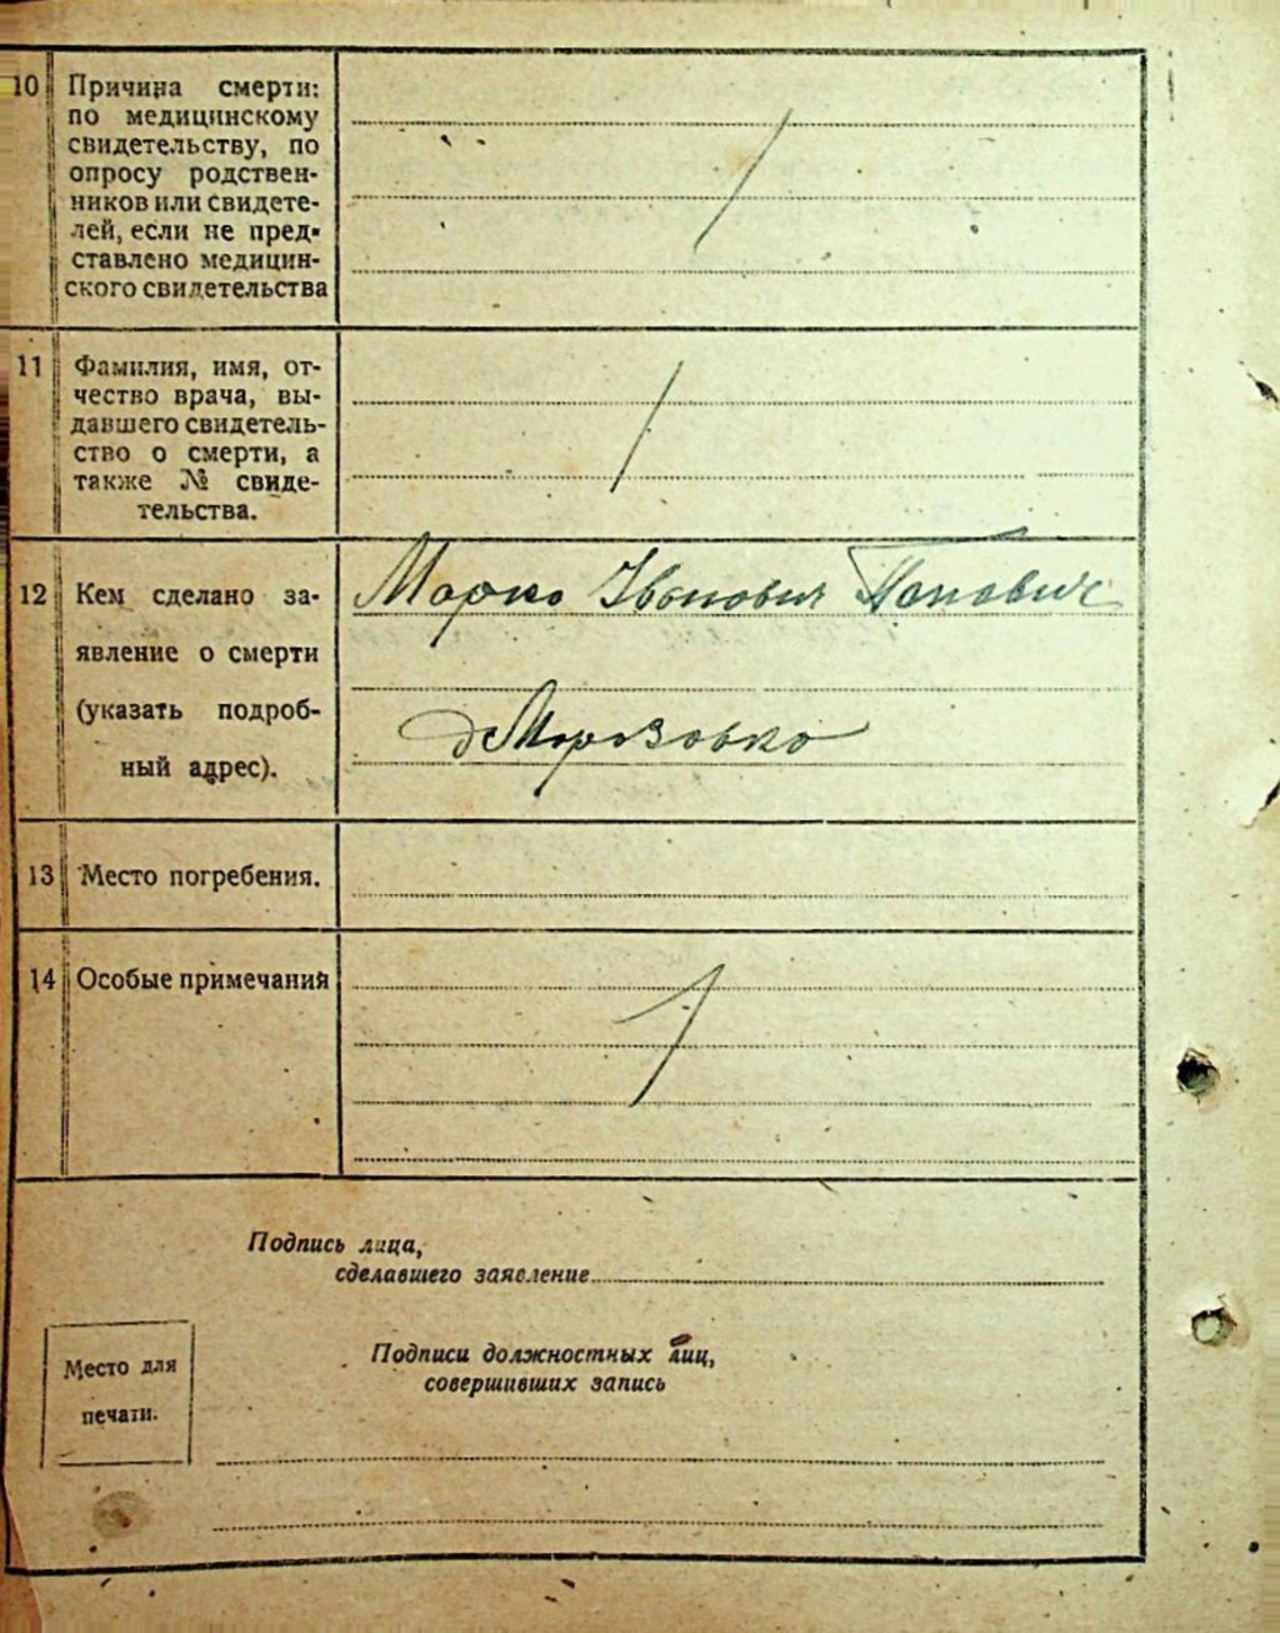 10 Причина смерти:
по медицинскому
свидетельству, по
опросу родствен-
ников или свидете-
лей, если не пред-
ставлено медицин-
ского свидетельства
11 Фамилия, имя, от-
чество врача, вы-
давшего свидетель-
ство о смерти, а
также № свиде-
тельства.
12 Кем сделано за-
явление о смерти
(указать подроб-
ный адрес).
Марко Іванович Попович
д Морозовка
13 Место погребения.
14 Особые примечания
Подпись лица,
сделавшего заявление
Место для
печати.
Подписи должностных лиц,
совершивших запись